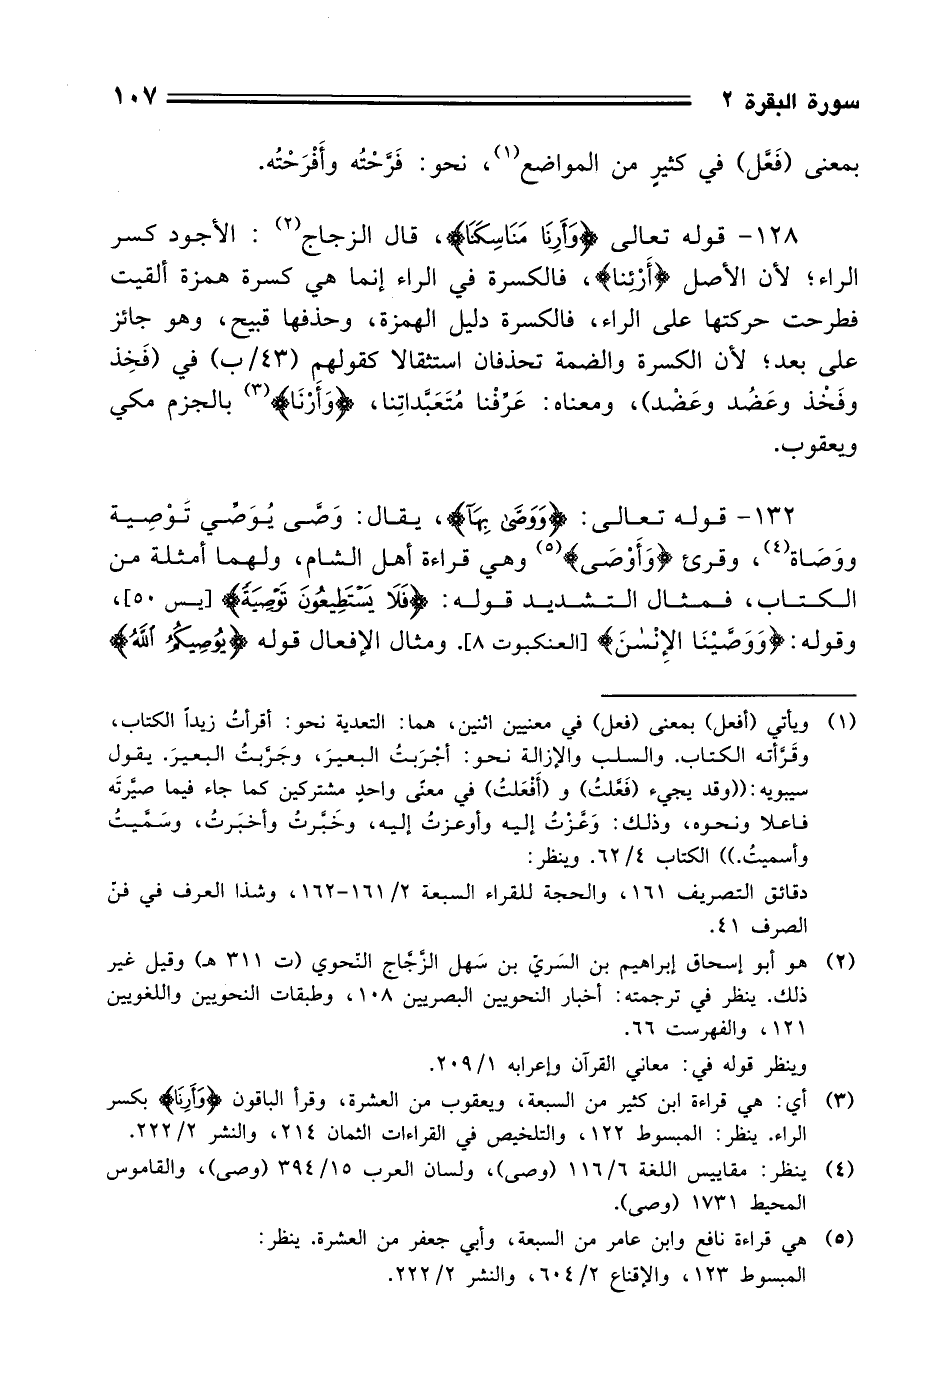 سورة البقرة ٢ ١٠٧
بمعنى (فَعَّل) في كثيرٍ من المواضع(١)، نحو: فَرَّحْتُه وأَفْرَحْتُه.
١٢٨- قوله تعالى ﴿وَأَرِنَا مَنَاسِكَنَا﴾، قال الزجاج(٢) : الأجود كسر
الراء؛ لأن الأصل ﴿أَرْئِنا﴾، فالكسرة في الراء إنما هي كسرة همزة ألقيت
فطرحت حركتها على الراء، فالكسرة دليل الهمزة، وحذفها قبيح، وهو جائز
على بعد؛ لأن الكسرة والضمة تحذفان استثقالا كقولهم (٤٣/ب) في (فَخِذ
وفَخْذ وعَضُد وعَضْد)، ومعناه: عَرِّفْنا مُتَعَبَّداتِنا، ﴿وَأَرْنَا﴾(٣) بالجزم مكي
ويعقوب.
١٣٢- قوله تعالى: ﴿وَوَصَّىٰ بِهَآ﴾، يقال: وَصَّى يُوَصِّي تَوْصِية
ووَصَاة(٤)، وقرئ ﴿وَأَوْصَى﴾(٥) وهي قراءة أهل الشام، ولهما أمثلة من
الكتاب، فمثال التشديد قوله: ﴿فَلَا يَسْتَطِيعُونَ تَوْصِيَةً﴾ [يس ٥٠]،
وقوله: ﴿وَوَصَّيْنَا الإِنْسَٰنَ﴾ [العنكبوت ٨]. ومثال الإفعال قوله ﴿يُوصِيكُمُ ٱللَّهُ﴾
(١) ويأتي (أفعل) بمعنى (فعل) في معنيين اثنين، هما: التعدية نحو: أقرأتُ زيداً الكتاب،
وقَرَّأته الكتاب. والسلب والإزالة نحو: أجْرَبتُ البعيرَ، وجَرَّبتُ البعيرَ. يقول
سيبويه: ((وقد يجيء (فَعَّلتُ) و (أَفْعَلتُ) في معنًى واحدٍ مشتركين كما جاء فيما صيَّرتَه
فاعلا ونحوه، وذلك: وَعَّزْتُ إليه وأوعزتُ إليه، وخَبَّرتُ وأخبَرتُ، وسَمَّيتُ
وأسميتُ.)) الكتاب ٦٢/٤. وينظر:
دقائق التصريف ١٦١، والحجة للقراء السبعة ١٦١/٢-١٦٢، وشذا العرف في فنّ
الصرف ٤١.
(٢) هو أبو إسحاق إبراهيم بن السَريّ بن سَهل الزَّجّاج النّحوي (ت ٣١١ هـ) وقيل غير
ذلك. ينظر في ترجمته: أخبار النحويين البصريين ١٠٨، وطبقات النحويين واللغويين
١٢١، والفهرست ٦٦.
وينظر قوله في: معاني القرآن وإعرابه ٢٠٩/١.
(٣) أي: هي قراءة ابن كثير من السبعة، ويعقوب من العشرة، وقرأ الباقون ﴿وَأَرِنَا﴾ بكسر
الراء. ينظر: المبسوط ١٢٢، والتلخيص في القراءات الثمان ٢١٤، والنشر ٢٢٢/٢.
(٤) ينظر: مقاييس اللغة ١١٦/٦ (وصى)، ولسان العرب ٣٩٤/١٥ (وصى)، والقاموس
المحيط ١٧٣١ (وصى).
(٥) هي قراءة نافع وابن عامر من السبعة، وأبي جعفر من العشرة. ينظر:
المبسوط ١٢٣، والإقناع ٦٠٤/٢، والنشر ٢٢٢/٢.